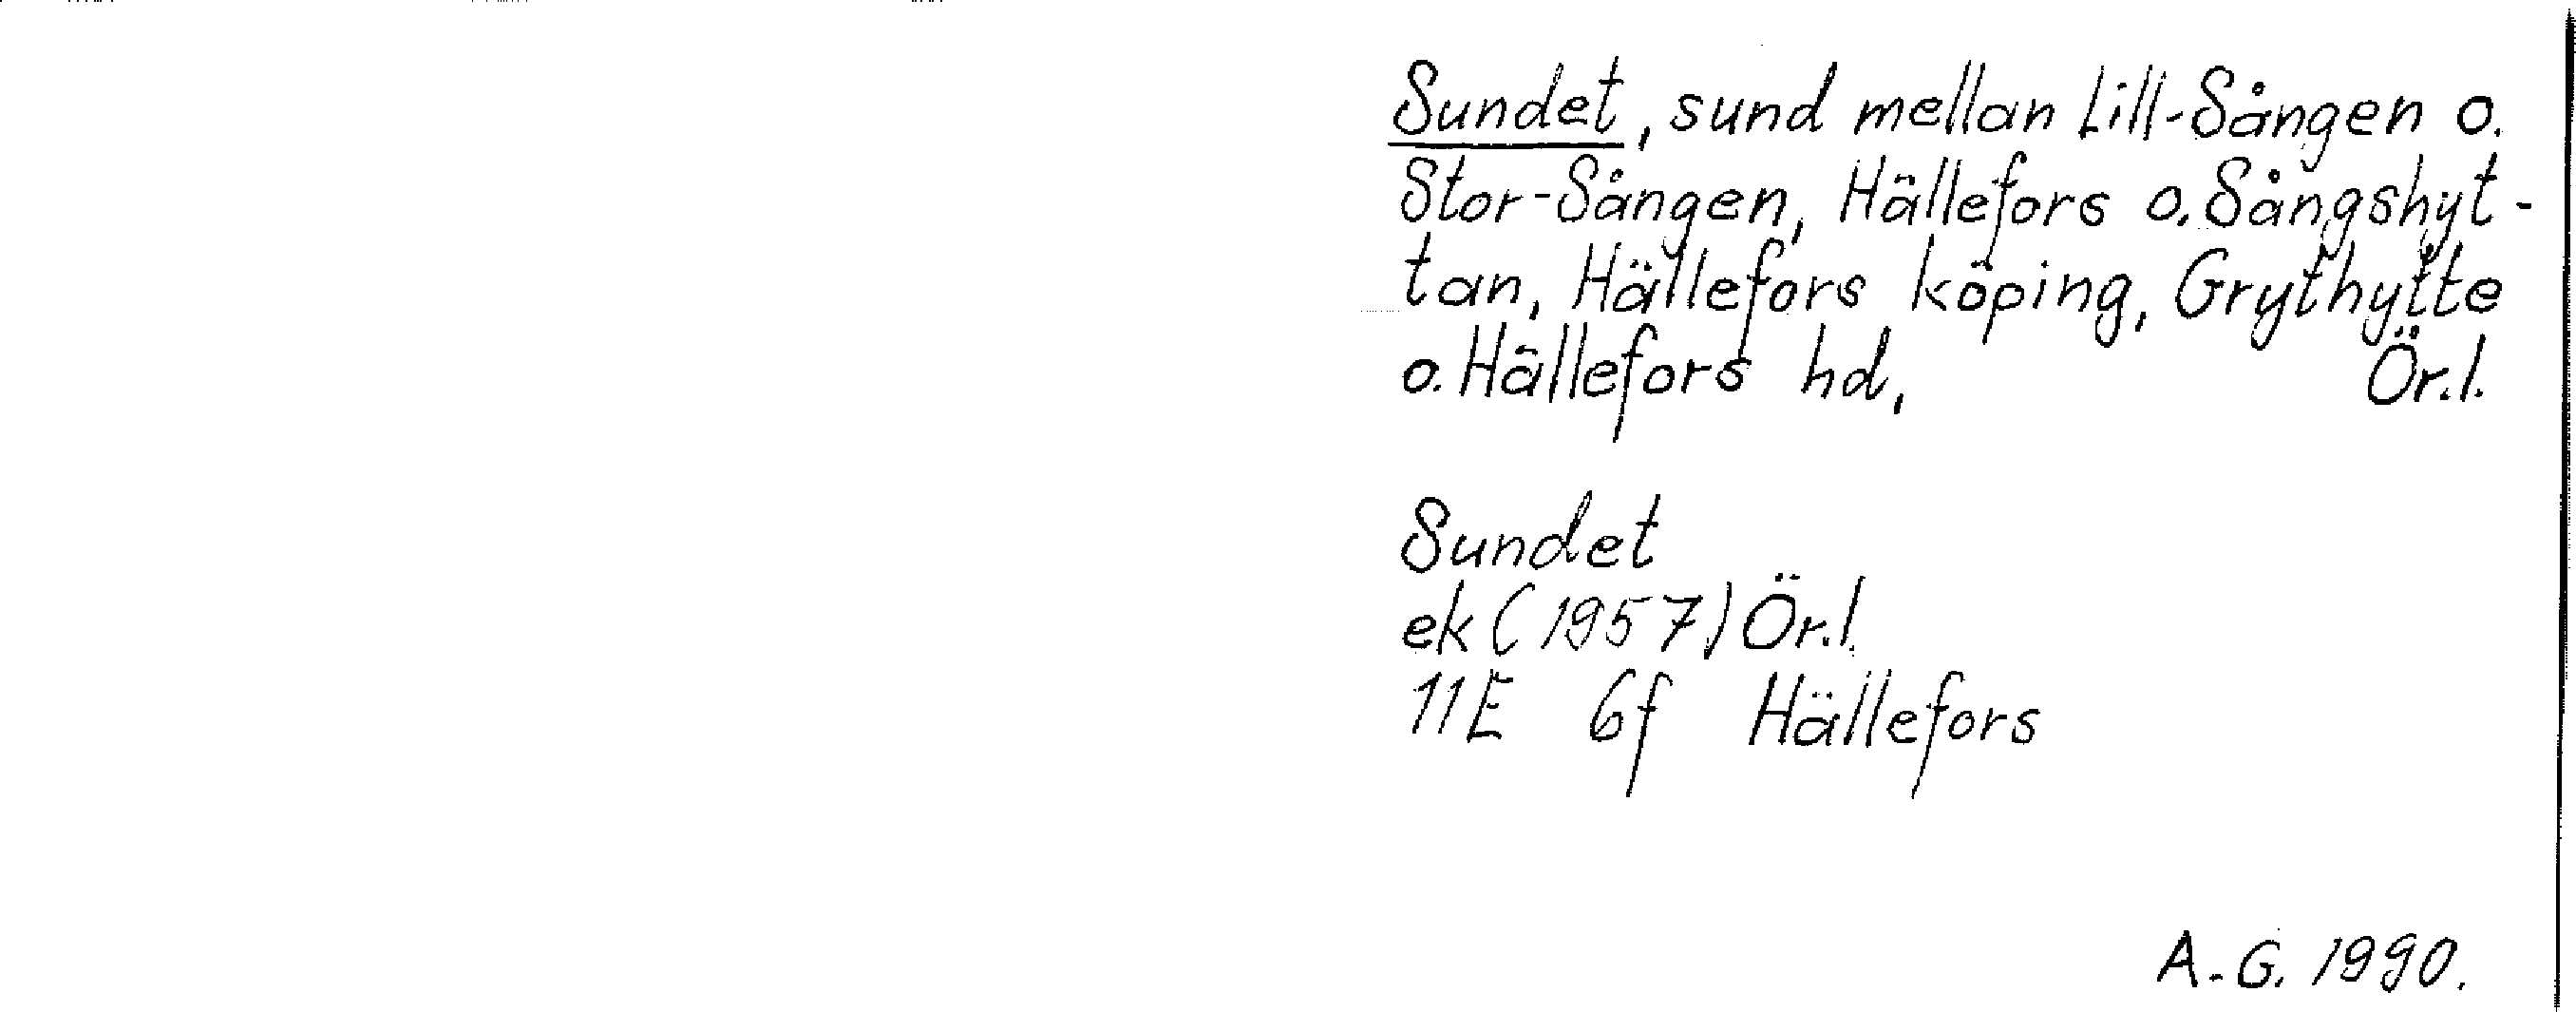 Sundet, sund mellan Lill-Sången o.
Stor-Sången, Hällefors o. Sångshyt-
tan, Hällefors köping, Grythytte
o. Hällefors hd, Ör.l.
Sundet
ek (1957) Ör.l.
11E 6f Hällefors
A.-G. 1990.